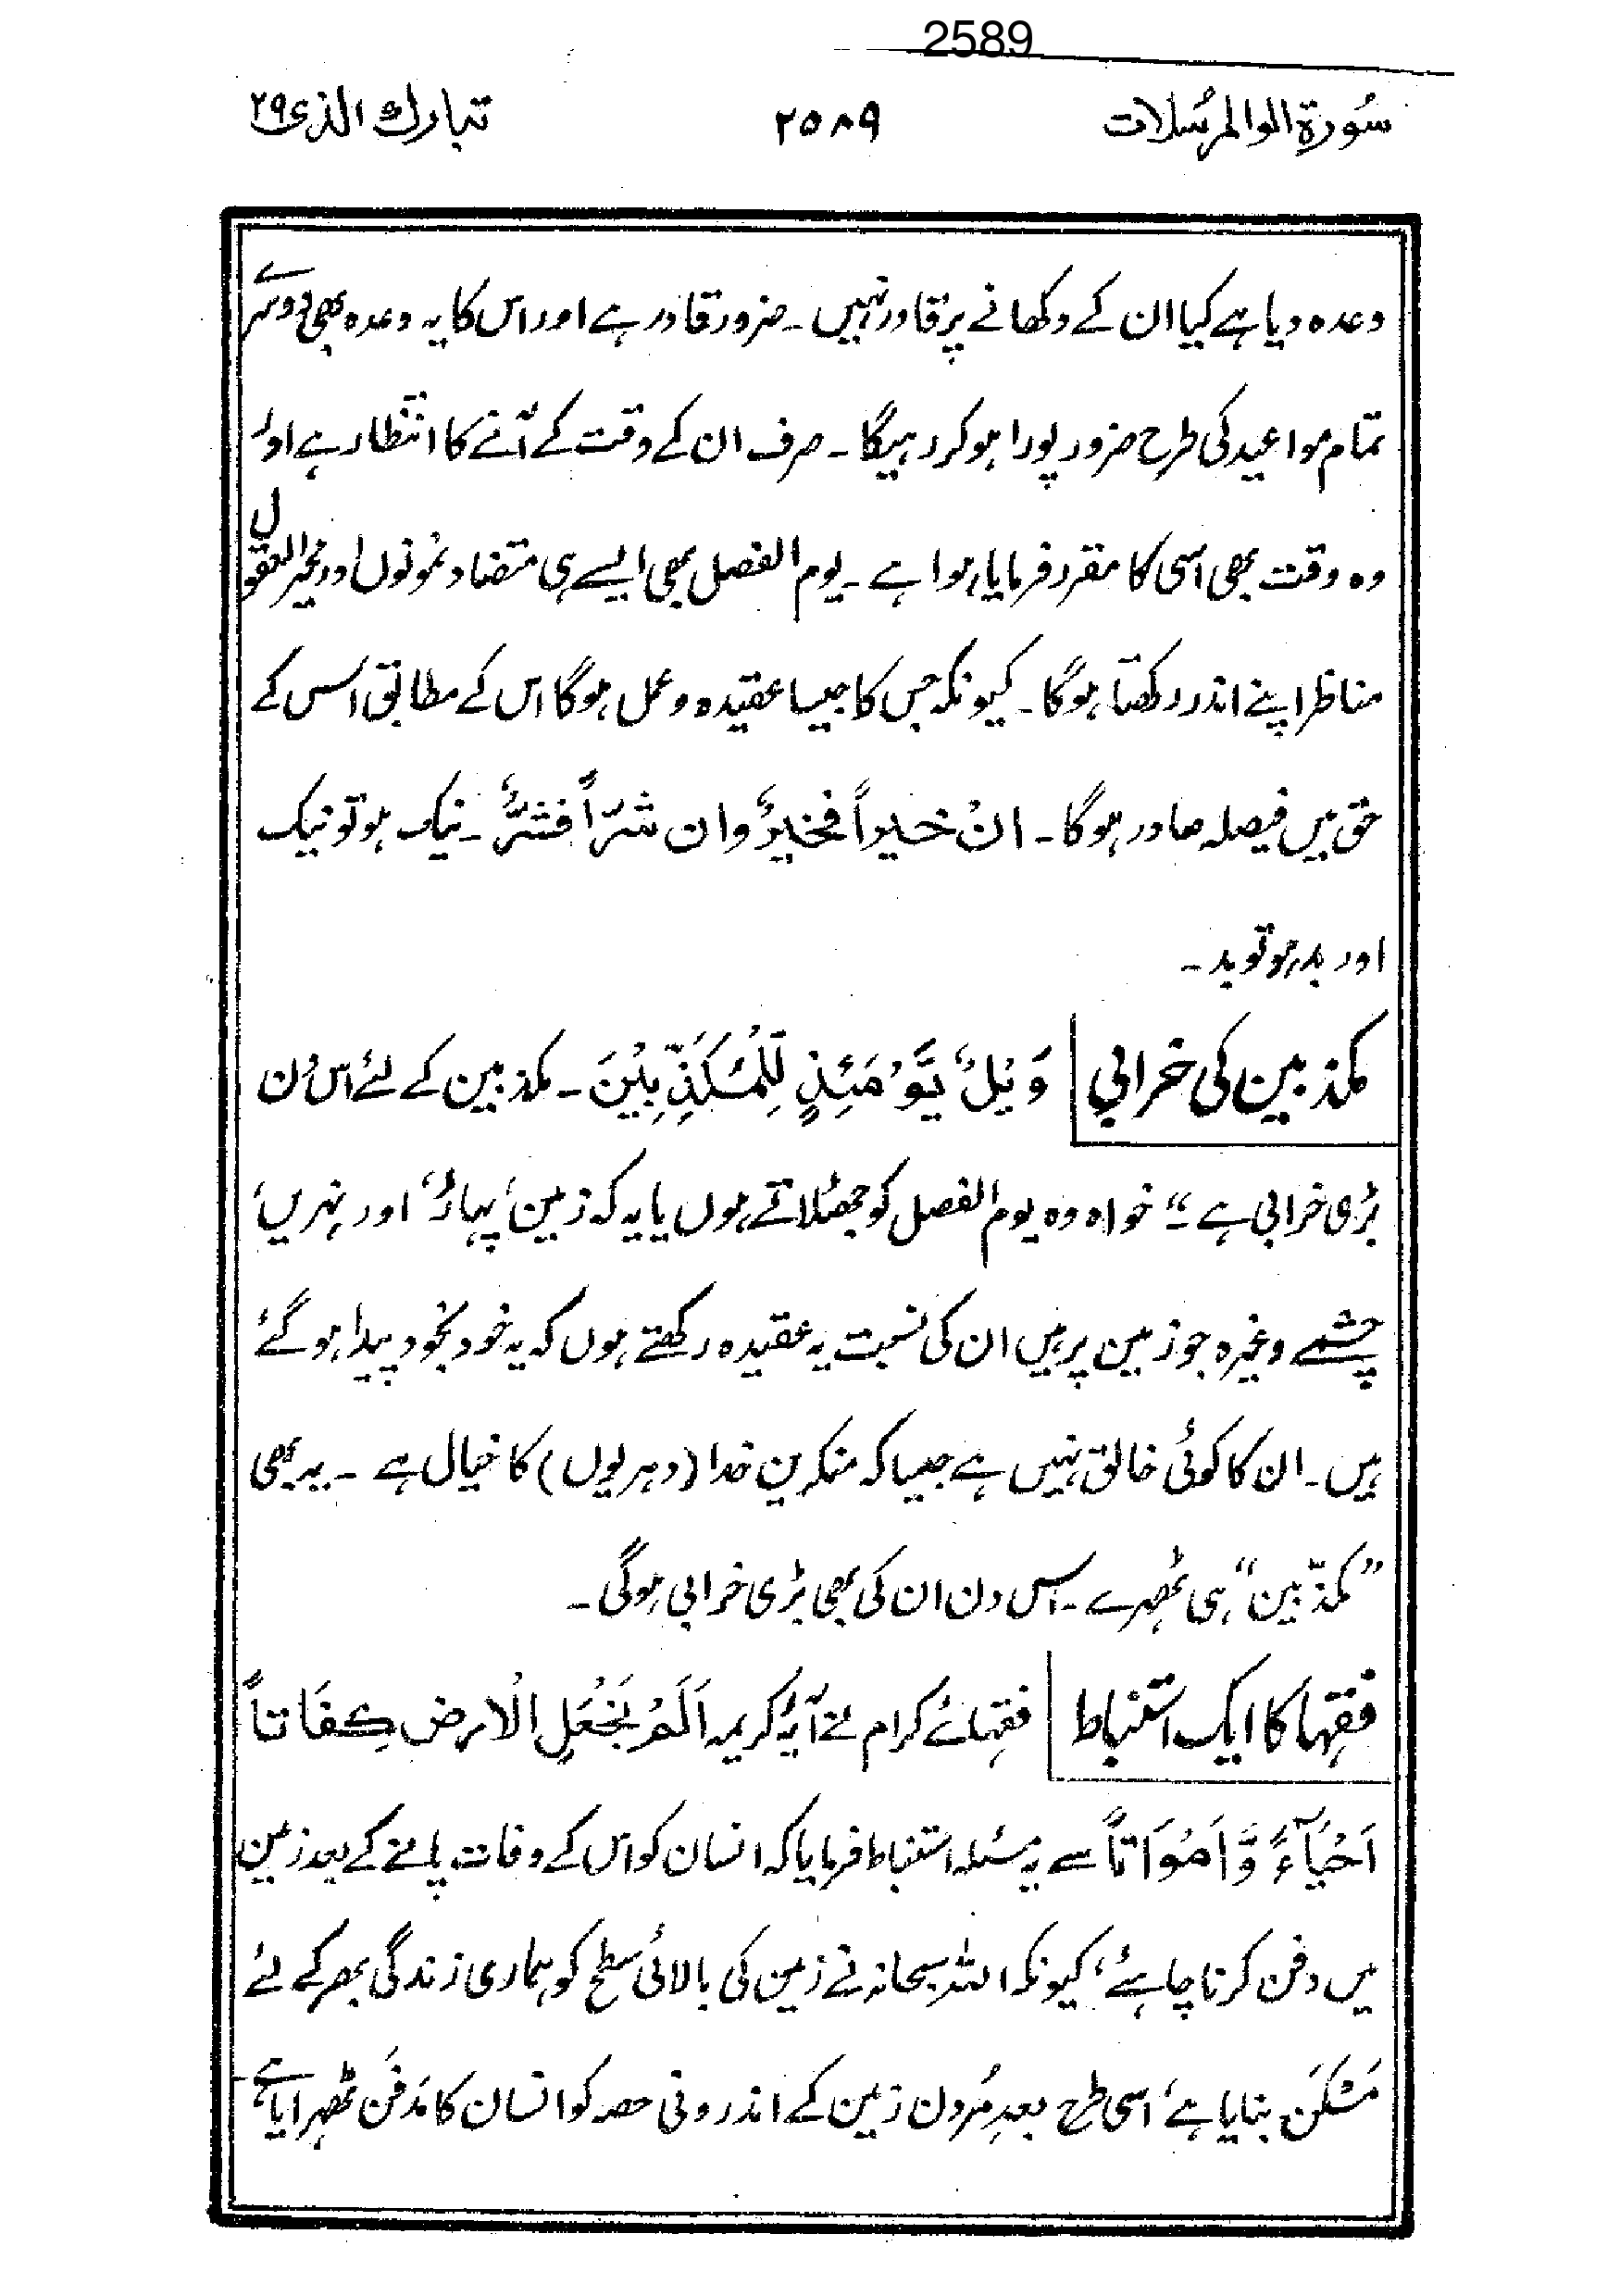 2589
سُورۃ الوالمرسُلات ۲۵۸۹ تبارك الذی ۲۹
وعدہ دیا ہے کیا ان کے دکھانے پر قادر نہیں ۔ ضرور قادر ہے اور اس کا یہ وعدہ بھی دوسرے
تمام مواعید کی طرح ضرور پورا ہو کر رہیگا ۔ صرف ان کے وقت کے آنے کا انتظار ہے اور
وہ وقت بھی اسی کا مقرر فرمایا ہوا ہے ۔ یوم الفصل بھی ایسے ہی متضاد نمونوں اور محیر العقول
مناظر اپنے اندر رکھتا ہوگا ۔ کیونکہ جس کا جیسا عقیدہ و عمل ہوگا اس کے مطابق اسس کے
حق میں فیصلہ صادر ہوگا ۔ انْ خیراً فخیرٌ وان شرّاً فشرٌّ ۔ نیک ہو تو نیک
اور بد ہو تو بد ۔
مکذبین کی خرابی وَیْلٌ یَّوْمَئِذٍ لِّلْمُکَذِّبِیْنَ ۔ مکذبین کے لئے اس دن
بڑی خرابی ہے ۔“ خواہ وہ یوم الفصل کو جھٹلاتے ہوں یا یہ کہ زمین، پہاڑ، اور نہریں،
چشمے وغیرہ جو زمین پر ہیں ان کی نسبت یہ عقیدہ رکھتے ہوں کہ یہ خود بخود پیدا ہو گئے
ہیں ۔ ان کا کوئی خالق نہیں ہے جیسا کہ منکرین خدا (دہریوں) کا خیال ہے ۔ یہ بھی
”مکذّبین“ ہی ٹھہرے ۔ اس دن ان کی بھی بڑی خرابی ہوگی ۔
فقہا کا ایک استنباط فقہائے کرام نے آیۂ کریمہ اَلَمْ نَجْعَلِ الْارض کِفَاتاً
اَحْیَآءً وَّاَمْوَاتاً سے یہ مسئلہ استنباط فرمایا کہ انسان کو اس کے وفات پانے کے بعد زمین
میں دفن کرنا چاہئے، کیونکہ اللہ سبحانہ نے زمین کی بالائی سطح کو ہماری زندگی بھر کے لئے
مَسْکَن بنایا ہے، اسی طرح بعدِ مُردن زمین کے اندرونی حصہ کو انسان کا مَدفَن ٹھہرایا ہے